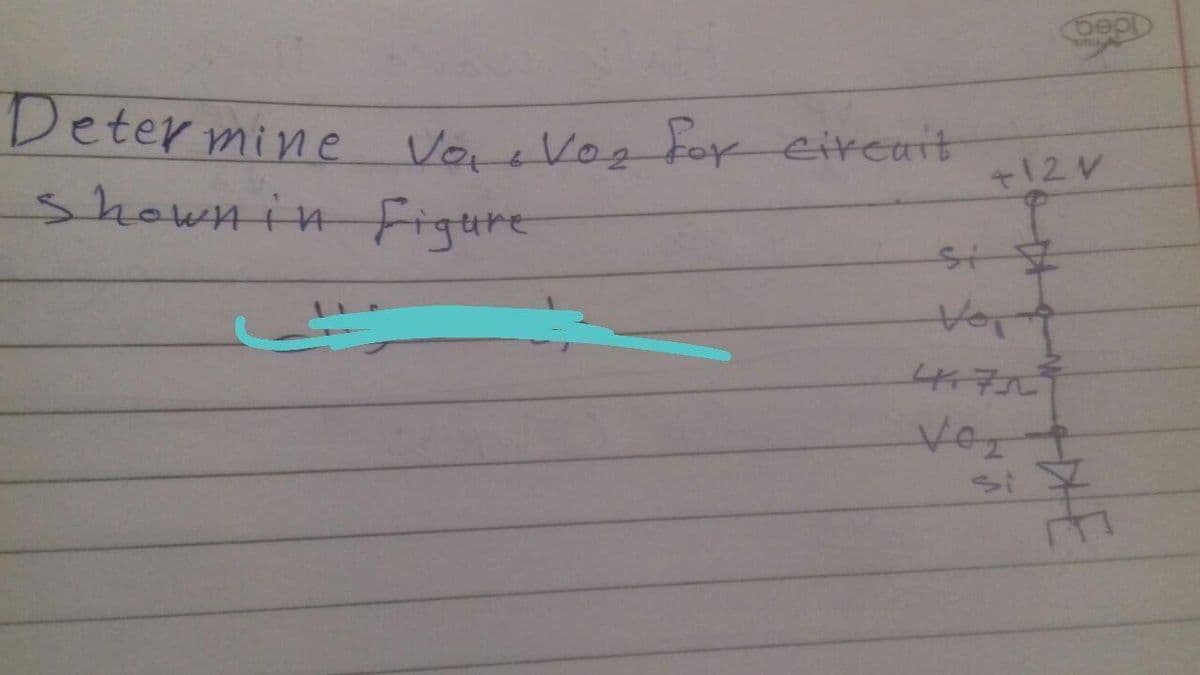 Idea
Determine Vo1 & Vo2 for circuit
shown in Figure
+12V
Si
Vo1
4.7Ω
Vo2
Si